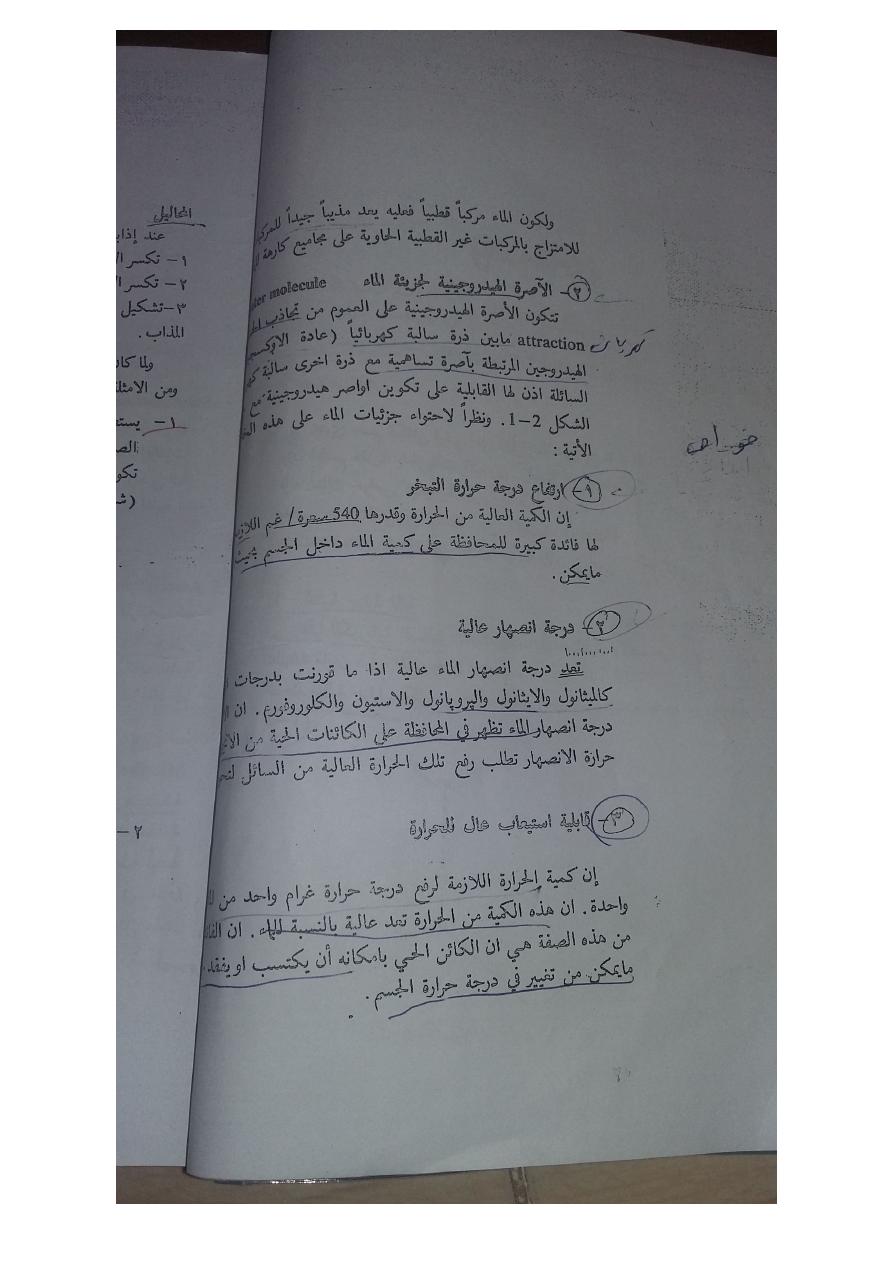 ولكون الماء مركباً قطبياً فعليه يعد مذيباً جيداً
للامتزاج بالمركبات غير القطبية الحاوية على مجاميع كارهة
٢- الآصرة الهيدروجينية لجزيئة الماء molecule
تتكون الأصرة الهيدروجينية على العموم من تجاذب
attraction مابين ذرة سالبة كهربائياً (عادة
الهيدروجين المرتبطة بآصرة تساهمية مع ذرة اخرى سالبة
السائلة اذن لها القابلية على تكوين اواصر هيدروجينية مع
الشكل 2-1. ونظراً لاحتواء جزئيات الماء على هذه
الأتية :
خواص
١- ارتفاع درجة حرارة التبخر
إن الكمية العالية من الحرارة وقدرها 540 سعرة / غم
لها فائدة كبيرة للمحافظة على كمية الماء داخل الجسم بحيث
مايمكن .
٢- درجة انصهار عالية
تعد درجة انصهار الماء عالية اذا ما قورنت بدرجات
كالميثانول والايثانول والبروبانول والاستيون والكلوروفورم . ان
درجة انصهار الماء تظهر في المحافظة على الكائنات الحية من
حرازة الانصهار تطلب رفع تلك الحرارة العالية من السائل
٣- قابلية استيعاب عال للحرارة
إن كمية الحرارة اللازمة لرفع درجة حرارة غرام واحد من
واحدة . ان هذه الكمية من الحرارة تعد عالية بالنسبة للماء . ان
من هذه الصفة هي ان الكائن الحي بامكانه أن يكتسب او يفقد
مايمكن من تغيير في درجة حرارة الجسم .
المحاليل
عند
١- تكسر
٢- تكسر
٣- تشكيل
المذاب .
ولما
ومن
١-
٢-